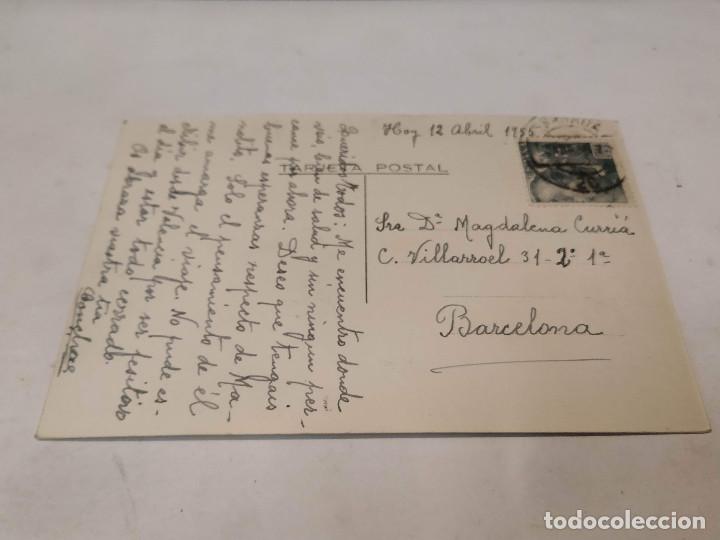 Hoy 12 Abril 1955
TARJETA POSTAL
Sra Dª Magdalena Curriá
C. Villarroel 31-2º 1ª
Barcelona
Queridos todos: Me encuentro donde
veis, bien de salud y sin ningun per-
cance por ahora. Deseo que tengais
buenas esperanzas respecto de Ma-
nolito. Solo el pensamiento de él
me amarga el viaje. No pude es-
cribir desde Valencia por ser festivo
el día y estar todo cerrado.
Os abraza vuestra tía
todocoleccion
todocoleccion.net